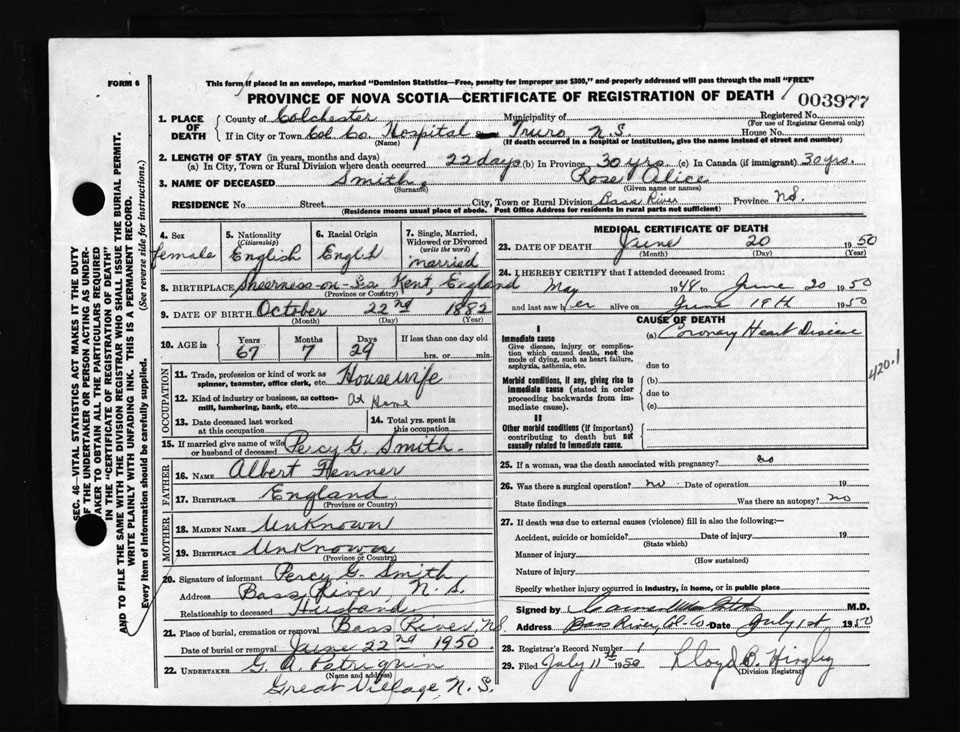 FORM 6
This form if placed in an envelope, marked "Dominion Statistics—Free, penalty for improper use $300," and properly addressed will pass through the mail "FREE"
PROVINCE OF NOVA SCOTIA—CERTIFICATE OF REGISTRATION OF DEATH
003977
1. PLACE OF DEATH
County of Colchester Municipality of Registered No.
(For use of Registrar General only)
If in City or Town Col. Co. Hospital – Truro N.S. House No.
(Name) (If death occurred in a hospital or institution, give the name instead of street and number)
2. LENGTH OF STAY (in years, months and days)
(a) In City, Town or Rural Division where death occurred 22 days (b) In Province 30 yrs. (c) In Canada (if immigrant) 30 yrs.
3. NAME OF DECEASED Smith, Rose Alice
(Surname) (Given name or names)
RESIDENCE No. Street City, Town or Rural Division Bass River Province N.S.
(Residence means usual place of abode. Post Office Address for residents in rural parts not sufficient)
4. Sex female
5. Nationality (Citizenship) English
6. Racial Origin English
7. Single, Married, Widowed or Divorced (write the word) married
8. BIRTHPLACE Sheerness-on-Sea Kent, England
(Province or Country)
9. DATE OF BIRTH October 22nd 1882
(Month) (Day) (Year)
10. AGE in Years Months Days If less than one day old
67 7 29 hrs. or min.
OCCUPATION
11. Trade, profession or kind of work as spinner, teamster, office clerk, etc. Housewife
12. Kind of industry or business, as cotton-mill, lumbering, bank, etc. At Home
13. Date deceased last worked at this occupation
14. Total yrs. spent in this occupation
15. If married give name of wife or husband of deceased Percy G. Smith.
FATHER
16. NAME Albert Fenner
17. BIRTHPLACE England
MOTHER
18. MAIDEN NAME Unknown
19. BIRTHPLACE Unknown
(Province or Country)
20. Signature of informant Percy G. Smith
Address Bass River, N.S.
Relationship to deceased Husband
21. Place of burial, cremation or removal Bass River, N.S.
Date of burial or removal June 22nd 1950
22. UNDERTAKER G. A. Patriquin
(Name and address)
Great Village, N.S.
MEDICAL CERTIFICATE OF DEATH
23. DATE OF DEATH June 20 1950
(Month) (Day) (Year)
24. I HEREBY CERTIFY that I attended deceased from:
May 1948 to June 20 1950
and last saw her alive on June 19th 1950
CAUSE OF DEATH
I
Immediate cause
Give disease, injury or complication which caused death, not the mode of dying, such as heart failure, asphyxia, asthenia, etc.
(a) Coronary Heart Disease
due to
420.1
Morbid conditions, if any, giving rise to immediate cause (stated in order proceeding backwards from immediate cause).
(b)
due to
(c)
II
Other morbid conditions (if important) contributing to death but not causally related to immediate cause.
25. If a woman, was the death associated with pregnancy? no
26. Was there a surgical operation? no. Date of operation 19
State findings Was there an autopsy? no
27. If death was due to external causes (violence) fill in also the following:—
Accident, suicide or homicide? Date of injury 19
(State which)
Manner of injury
(How sustained)
Nature of injury
Specify whether injury occurred in industry, in home, or in public place
Signed by M.D.
Address Bass River, Col. Co. Date July 1st 1950
28. Registrar's Record Number 1
29. Filed July 11th 1950 Lloyd B.
(Division Registrar)
SEC. 46—VITAL STATISTICS ACT MAKES IT THE DUTY
OF THE UNDERTAKER OR PERSON ACTING AS UNDERTAKER TO OBTAIN ALL THE PARTICULARS REQUIRED
IN THE "CERTIFICATE OF REGISTRATION OF DEATH"
AND TO FILE THE SAME WITH THE DIVISION REGISTRAR WHO SHALL ISSUE THE BURIAL PERMIT.
WRITE PLAINLY WITH UNFADING INK. THIS IS A PERMANENT RECORD.
Every item of information should be carefully supplied. (See reverse side for instructions.)